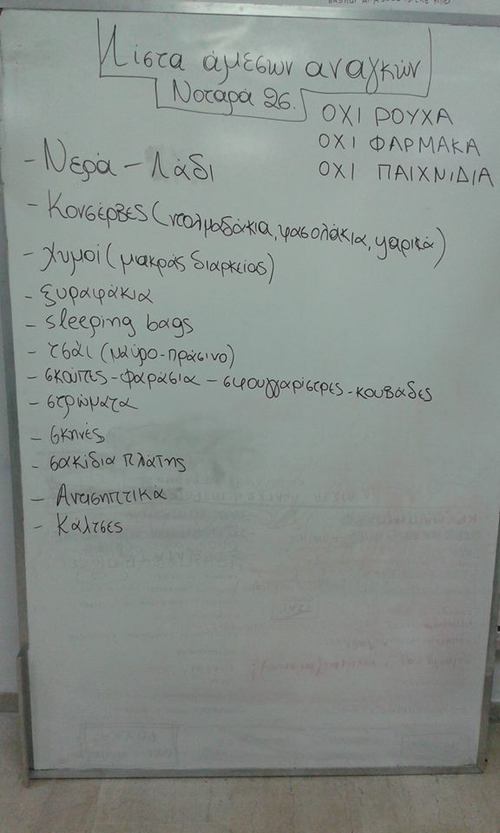 Λίστα άμεσων αναγκών
Νοταρά 26.
ΟΧΙ ΡΟΥΧΑ
ΟΧΙ ΦΑΡΜΑΚΑ
ΟΧΙ ΠΑΙΧΝΙΔΙΑ
- Νερά - Λάδι
- Κονσέρβες (ντολμαδάκια, φασολάκια, ψαρικά)
- Χυμοί (μακράς διαρκείας)
- ξυραφάκια
- sleeping bags
- τσάι (μαύρο-πράσινο)
- σκούπες - φαράσια - σφουγγαρίστρες - κουβάδες
- στρώματα
- σκηνές
- σακίδια πλάτης
- Αντισηπτικά
- Κάλτσες